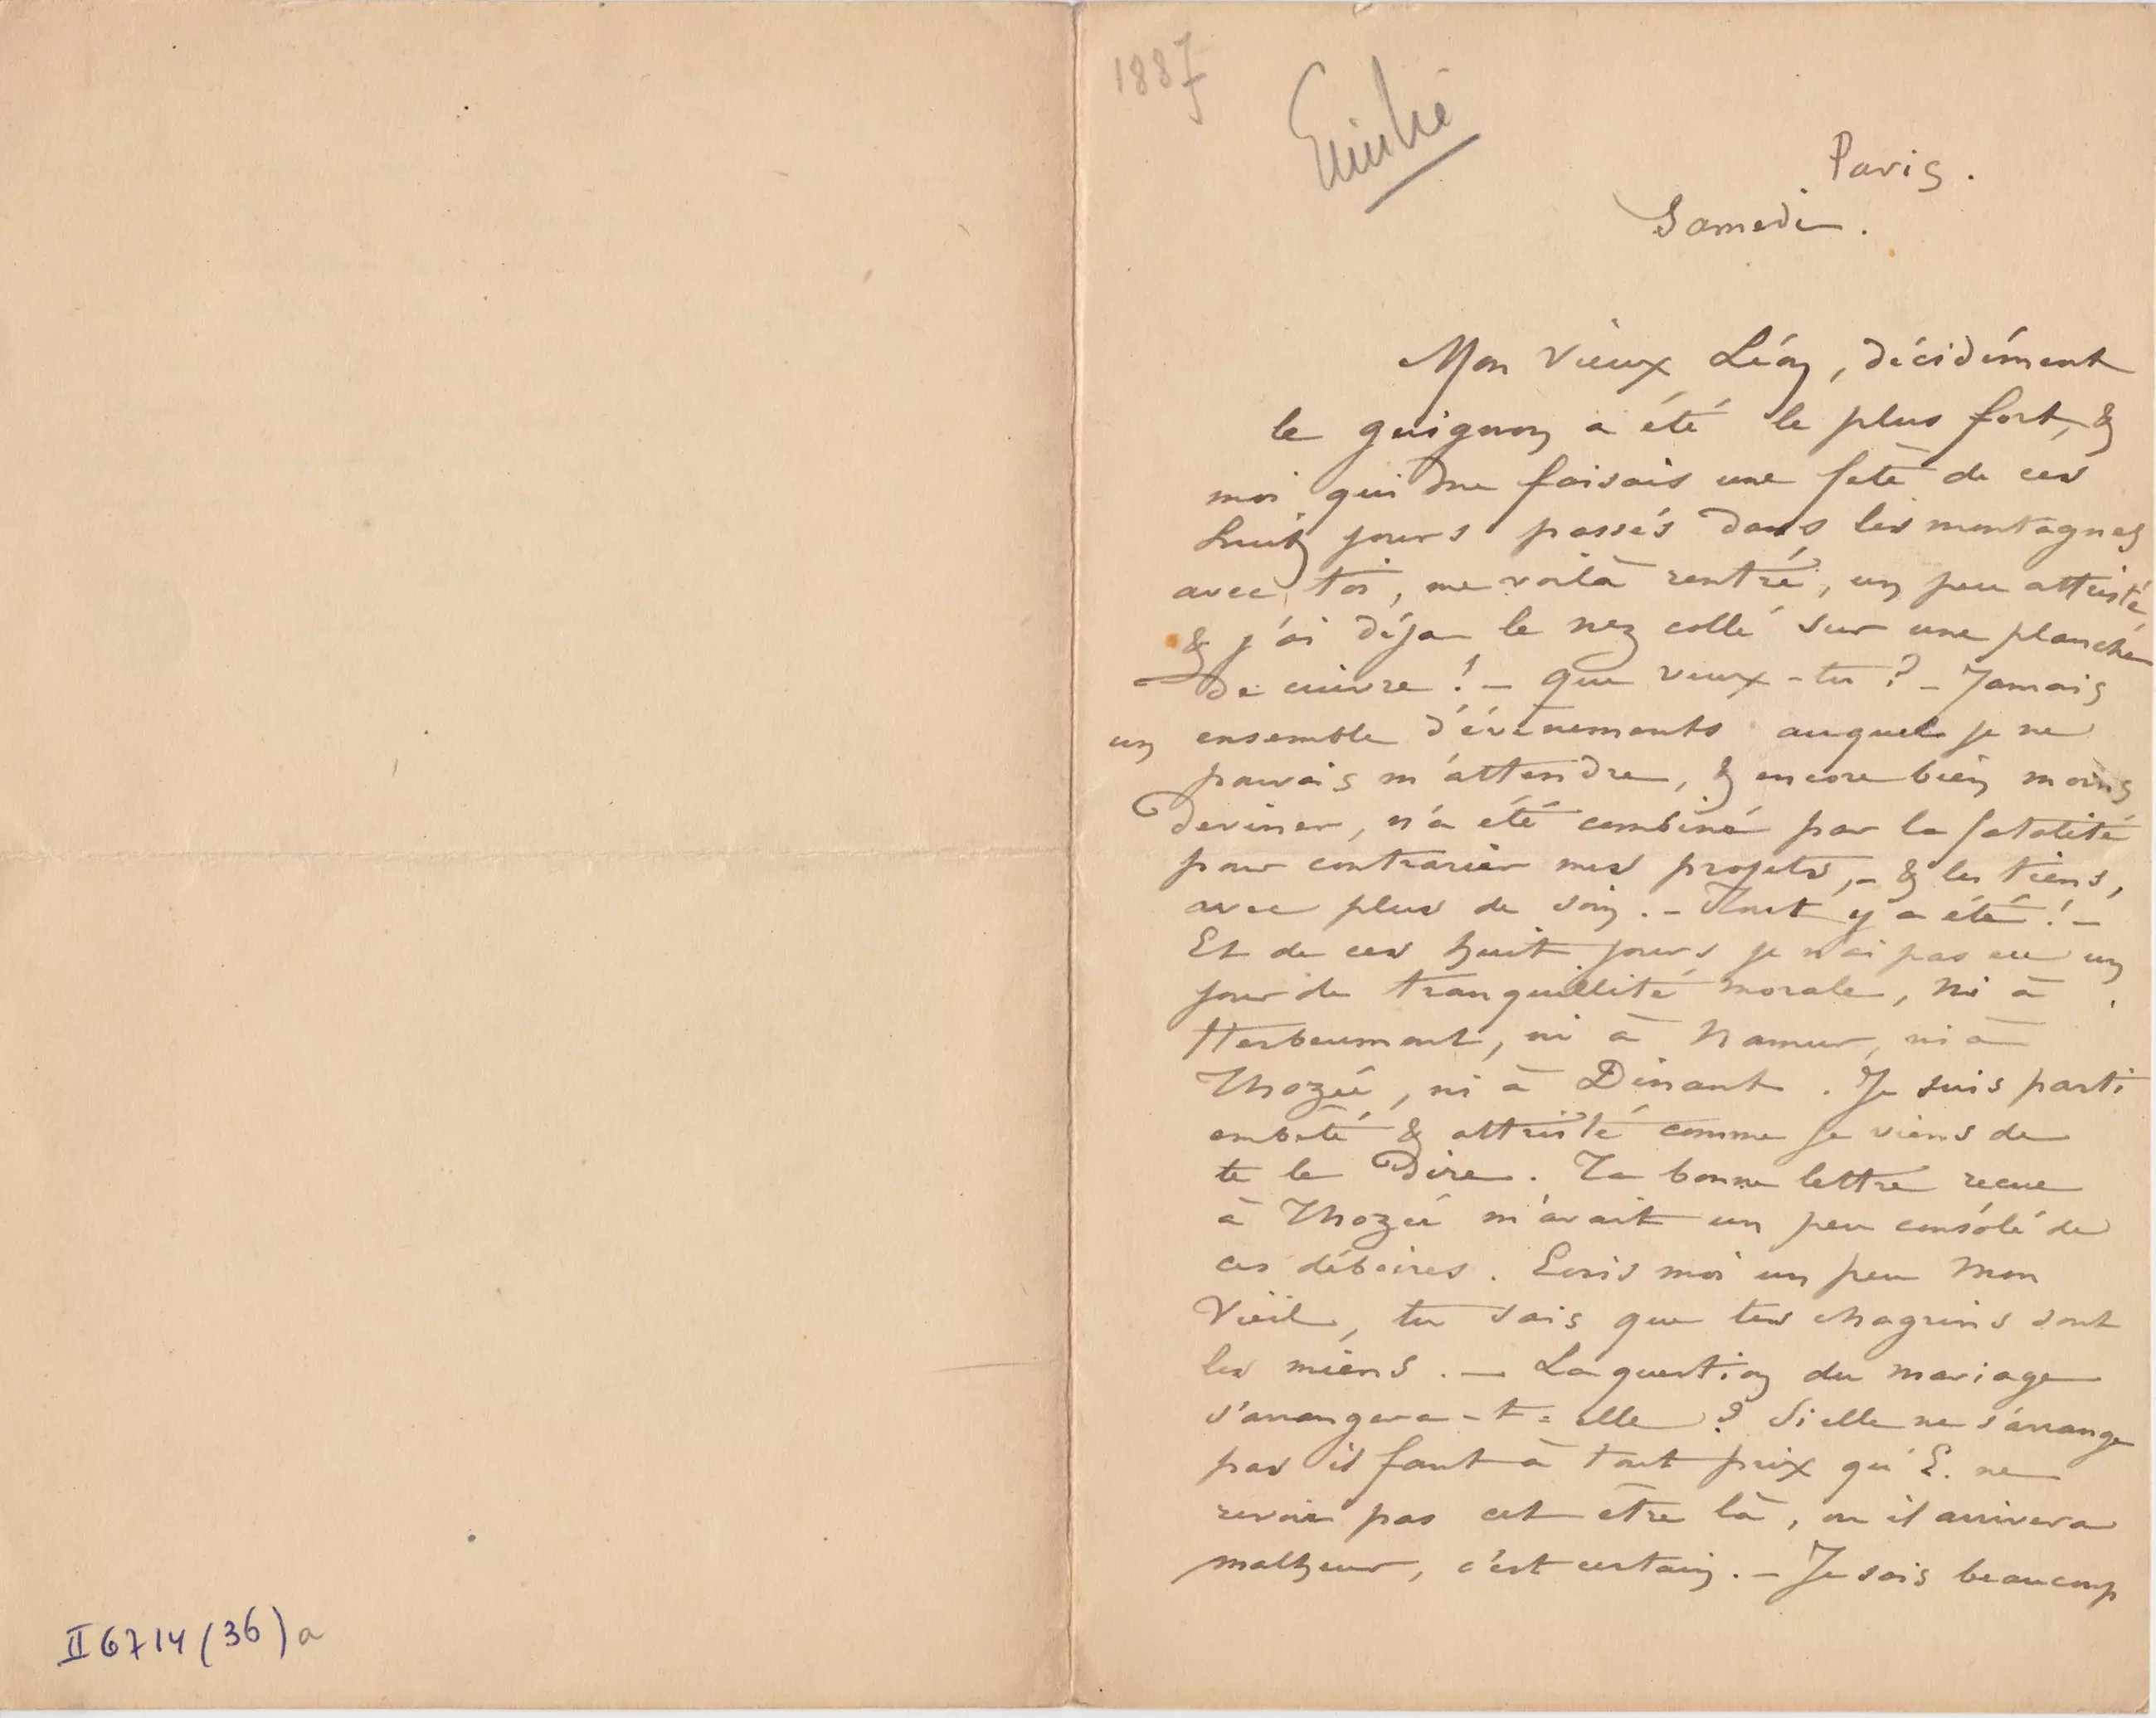 II 6714 (36) a
1887
Paris.
Samedi.
Mon vieux Léon, décidément
le guignon a été le plus fort, &
moi qui me faisais une fete de ces
huit jours passés dans les montagnes
avec toi, me voilà rentré, un peu attristé
& j'ai déja le nez collé sur une planche
de cuivre ! – Que veux-tu ? – Jamais
un ensemble d'évènements auquel je ne
pouvais m'attendre, & encore bien moins
deviner, n'a été combiné par la fatalité
pour contrarier mes projets, – & les tiens,
avec plus de soin. – Tout y a été ! –
Et de ces huit jours je n'ai pas eu un
jour de tranquillité morale, ni à
Herbeumont, ni à Namur, ni à
Thozée, ni à Dinant. Je suis parti
embêté & attristé comme je viens de
te le dire. Ta bonne lettre recue
à Thozée m'avait un peu consolé de
ces déboires. Ecris moi un peu mon
Vieil, tu sais que tes chagrins sont
les miens. – La question du mariage
s'arrangera-t-elle ? Si elle ne s'arrange
pas il faut à tout prix qu'E. ne
revoie pas cet être là, ou il arrivera
malheur, c'est certain. – Je sais beaucoup